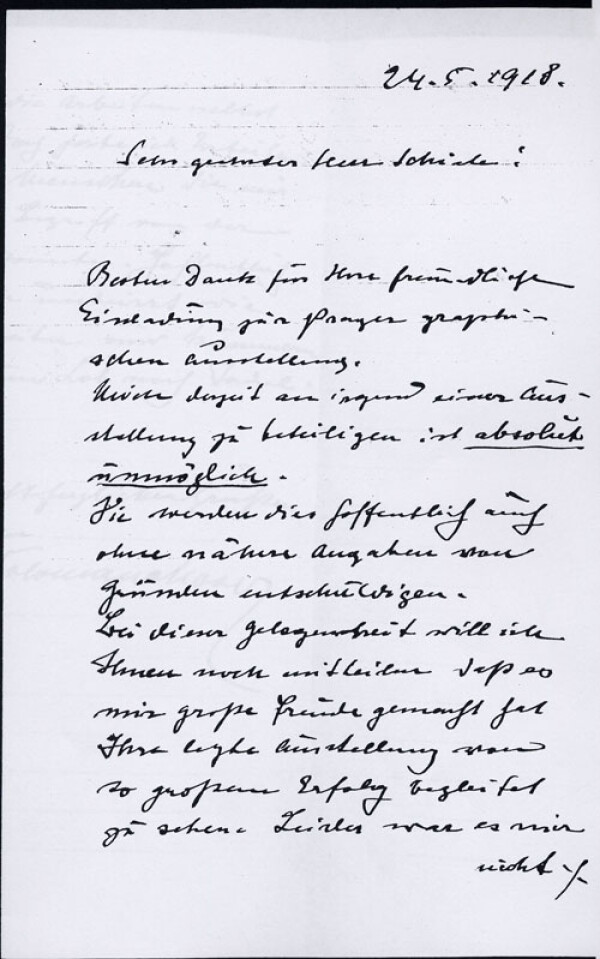 24.5.1918.
Sehr geehrter Herr Schiele!
Besten Dank für Ihre freundliche
Einladung zur Prager graphi-
schen Ausstellung.
Mich derzeit an irgend einer Aus-
stellung zu beteiligen ist absolut
unmöglich.
Sie werden dies hoffentlich auch
ohne nähere Angaben von
Gründen entschuldigen.
Bei dieser Gelegenheit will ich
Ihnen noch mitteilen daß es
mir große Freude gemacht hat
Ihre letzte Ausstellung von
so großem Erfolg begleitet
zu sehen. Leider war es mir
nicht ./.